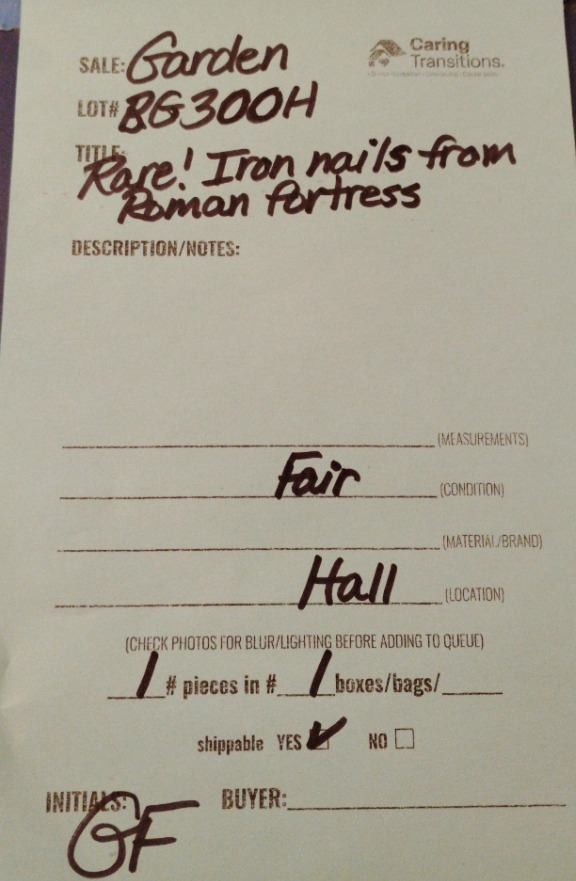 Caring
Transitions®
SALE: Garden
LOT# BG300H
TITLE:
Rare! Iron nails from
Roman fortress
DESCRIPTION/NOTES:
(MEASUREMENTS)
Fair (CONDITION)
(MATERIAL/BRAND)
Hall (LOCATION)
(CHECK PHOTOS FOR BLUR/LIGHTING BEFORE ADDING TO QUEUE)
1 # pieces in # 1 boxes/bags/
shippable YES NO
INITIALS: GF BUYER: